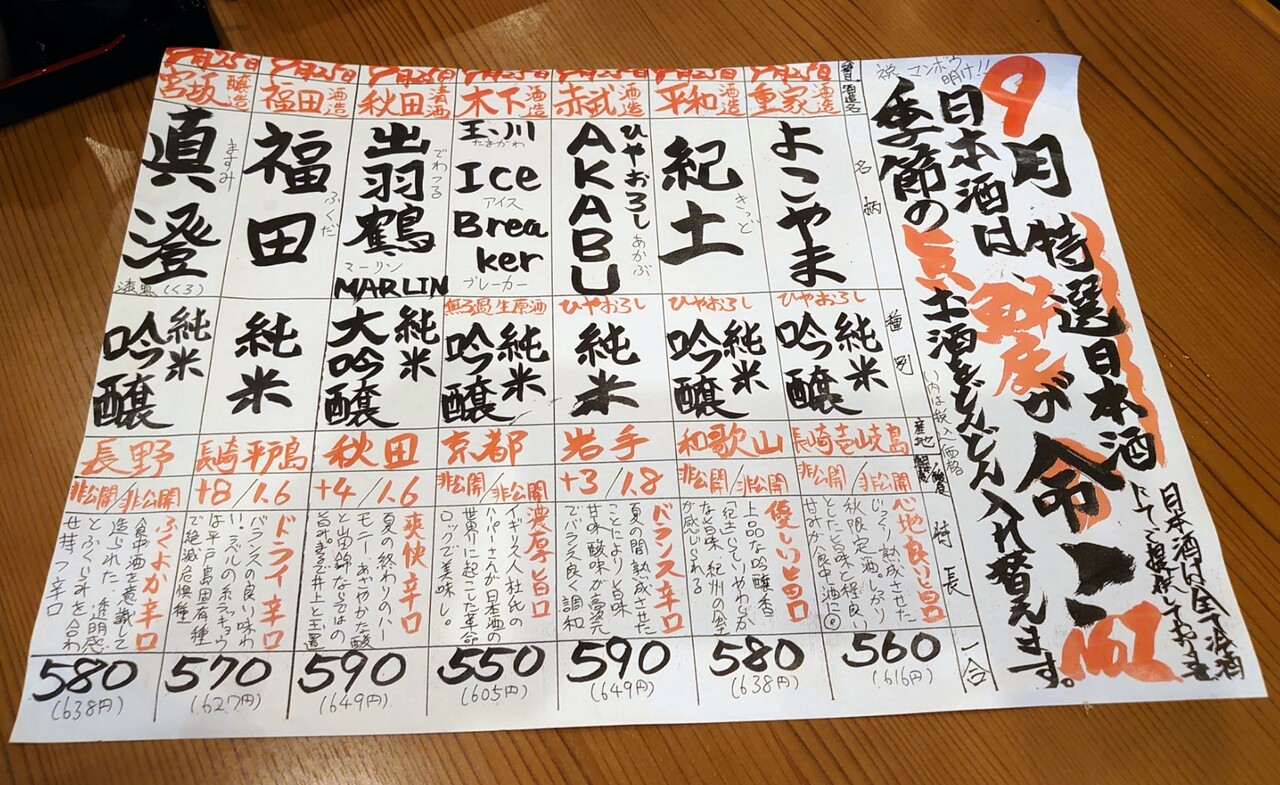 9月特選日本酒
日本酒は全て冷酒
にてご提供しております
日本酒は鮮度が命!!
No1
祝マンボウ
明け!!
季節の旨え酒をどんどん入れ替えます。
( )内は税込価格
酒造名
名柄
種別
産地
特長
一合
9月25日
重家酒造
よこやま
ひやおろし
純米
吟醸
長崎壱岐島
非公開/非公開
心地良い旨口
じっくり熟成させた
秋限定酒。しっかり
とした旨味と程良い
甘みが食中酒に◎
560
(616円)
9月25日
平和酒造
紀土
きっど
ひやおろし
純米
吟醸
和歌山
非公開/非公開
優しい旨口
上品な吟醸香
紀土らしいやわらか
な旨味、紀州の風土
が感じられる
580
(638円)
9月25日
赤武酒造
ひやおろし
AKABU
あかぶ
ひやおろし
純米
岩手
+3/1.8
バランス辛口
夏の間熟成させた
ことにより、旨味
甘味酸味が豪完
でバランス良く調和
590
(649円)
9月25日
木下酒造
玉川
たまがわ
Ice
アイス
Brea
ker
ブレーカー
無ろ過生原酒
純米
吟醸
京都
非公開/非公開
濃厚旨口
イギリス人杜氏の
ハーパーさんが日本酒の
世界に起こした革命
ロックで美味し。
550
(605円)
9月25日
秋田清酒
出羽鶴
でわつる
マーリン
MARLIN
純米
大吟醸
秋田
+4/1.6
爽快辛口
夏の終わりのハー
モニー。あざやかな酸
と山田錦ならではの
旨み。まるで井上と玉置
590
(649円)
9月25日
福田酒造
福田
ふくだ
純米
長崎平戸島
+8/1.6
ドライ辛口
バランスの良い味わ
い!ラベルの糸ラッキョウ
は平戸島固有種
で絶滅危惧種
570
(627円)
9月25日
宮坂醸造
真澄
ますみ
漆黒(くろ)
純米
吟醸
長野
非公開/非公開
ふくよか辛口
食中酒を意識して
造られた、透明感
とふくらみを合わ
せ持つ辛口
580
(638円)